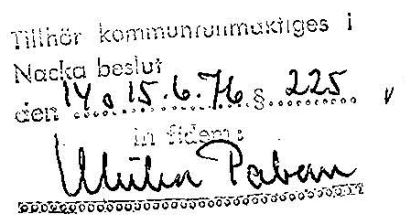 Tillhör kommunfullmäktiges i
Nacka beslut
den 14 o 15.6.76 § 225
in fidem: